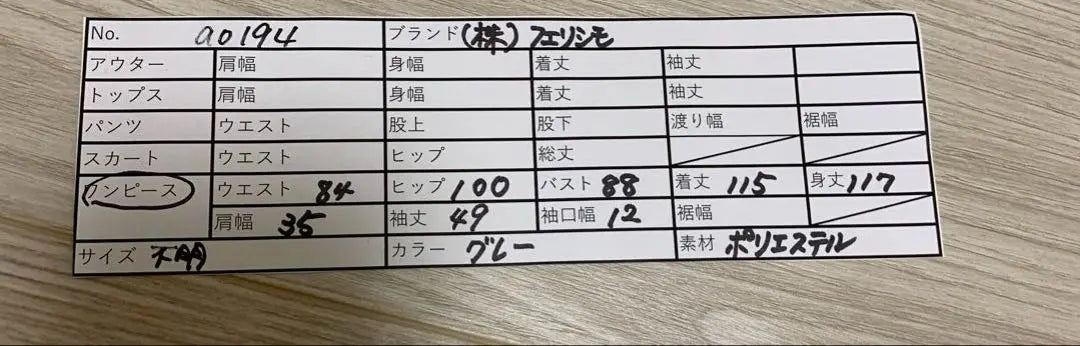 No. a0194 ブランド (株)フェリシモ
アウター 肩幅 身幅 着丈 袖丈
トップス 肩幅 身幅 着丈 袖丈
パンツ ウエスト 股上 股下 渡り幅 裾幅
スカート ウエスト ヒップ 総丈
ワンピース ウエスト 84 ヒップ 100 バスト 88 着丈 115 身丈 117
肩幅 35 袖丈 49 袖口幅 12 裾幅
サイズ 不明 カラー グレー 素材 ポリエステル